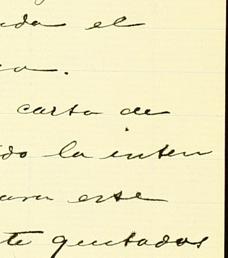 da el
o.
carta de
do la inten
ara este
te gustados